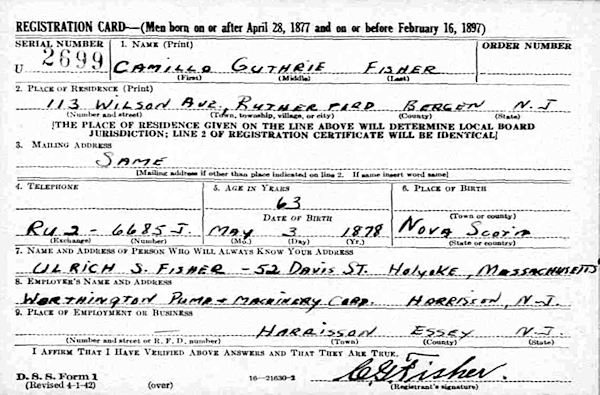 REGISTRATION CARD—(Men born on or after April 28, 1877 and on or before February 16, 1897)
SERIAL NUMBER 1. NAME (Print) ORDER NUMBER
U 2699 CAMILLO GUTHRIE FISHER
(First) (Middle) (Last)
2. PLACE OF RESIDENCE (Print)
113 WILSON AVE, RUTHERFORD BERGEN N.J
(Number and street) (Town, township, village, or city) (County) (State)
[THE PLACE OF RESIDENCE GIVEN ON THE LINE ABOVE WILL DETERMINE LOCAL BOARD
JURISDICTION; LINE 2 OF REGISTRATION CERTIFICATE WILL BE IDENTICAL]
3. MAILING ADDRESS
SAME
[Mailing address if other than place indicated on line 2. If same insert word same]
4. TELEPHONE 5. AGE IN YEARS 6. PLACE OF BIRTH
63
DATE OF BIRTH (Town or county)
RU 2 - 6685 J. MAY 3 1878 NOVA SCOTIA
(Exchange) (Number) (Mo.) (Day) (Yr.) (State or country)
7. NAME AND ADDRESS OF PERSON WHO WILL ALWAYS KNOW YOUR ADDRESS
ULRICH S. FISHER - 52 DAVIS ST. HOLYOKE, MASSACHUSETTS
8. EMPLOYER'S NAME AND ADDRESS
WORTHINGTON PUMP + MACHINERY CORP. HARRISSON, N.J.
9. PLACE OF EMPLOYMENT OR BUSINESS
HARRISSON ESSEY N.J.
(Number and street or R. F. D. number) (Town) (County) (State)
I AFFIRM THAT I HAVE VERIFIED ABOVE ANSWERS AND THAT THEY ARE TRUE.
C G Fisher.
D. S. S. Form 1
(Revised 4-1-42) (over) 16—21630-2 (Registrant's signature)